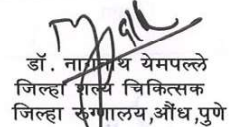 डॉ. नागनाथ येमपल्ले
जिल्हा शल्य चिकित्सक
जिल्हा रुग्णालय,औंध,पुणे